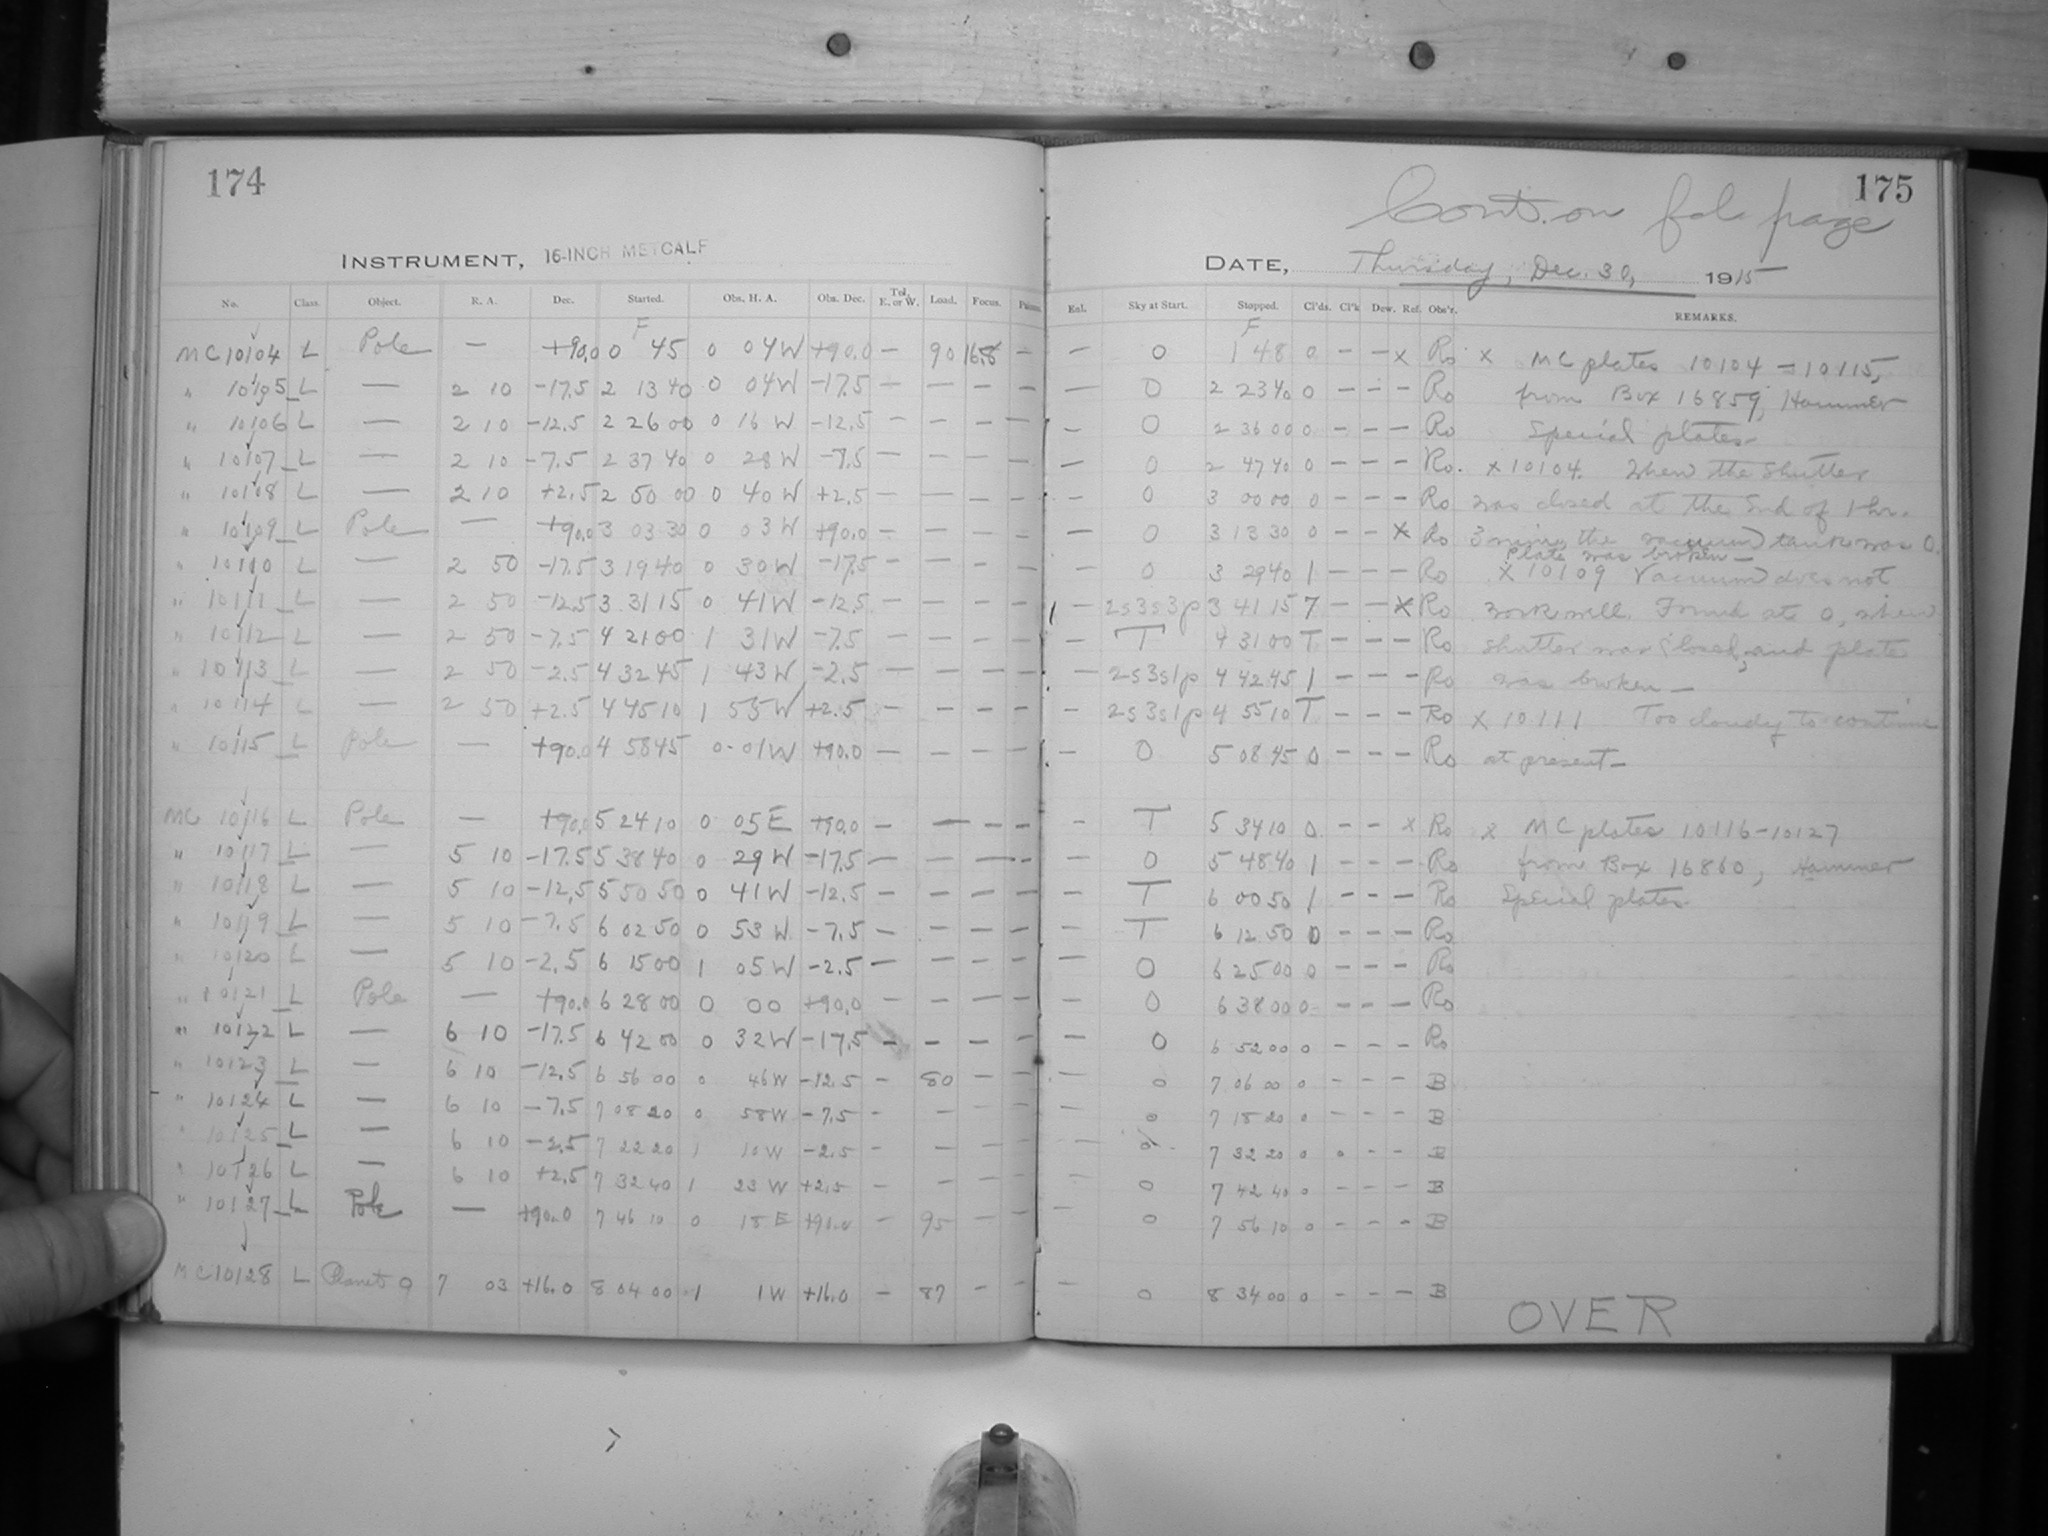 174
INSTRUMENT, 16-INCH METCALF
No. Class. Object. R. A. Dec. Started. Obs. H. A. Obs. Dec. Tel. E. or W. Load. Focus.
F
MC 10104 L Pole — +90.0 0 45 0 04 W +90.0 — 90 16.8 —
" 10105 L — 2 10 -17.5 2 13 40 0 04 W -17.5 — — — —
" 10106 L — 2 10 -12.5 2 26 00 0 16 W -12.5 — — — —
" 10107 L — 2 10 -7.5 2 37 40 0 28 W -7.5 — — — —
" 10108 L — 2 10 +2.5 2 50 00 0 40 W +2.5 — — — —
" 10109 L Pole — +90.0 3 03 30 0 03 W +90.0 — — — —
" 10110 L — 2 50 -17.5 3 19 40 0 30 W -17.5 — — — —
" 10111 L — 2 50 -12.5 3 31 15 0 41 W -12.5 — — — —
" 10112 L — 2 50 -7.5 4 21 00 1 31 W -7.5 — — — —
" 10113 L — 2 50 -2.5 4 32 45 1 43 W -2.5 — — — —
" 10114 L — 2 50 +2.5 4 45 10 1 55 W +2.5 — — — —
" 10115 L Pole — +90.0 4 58 45 0 01 W +90.0 — — — —
MC 10116 L Pole — +90.0 5 24 10 0 05 E +90.0 — — — —
" 10117 L — 5 10 -17.5 5 38 40 0 29 W -17.5 — — — —
" 10118 L — 5 10 -12.5 5 50 50 0 41 W -12.5 — — — —
" 10119 L — 5 10 -7.5 6 02 50 0 53 W -7.5 — — — —
" 10120 L — 5 10 -2.5 6 15 00 1 05 W -2.5 — — — —
" 10121 L Pole — +90.0 6 28 00 0 00 +90.0 — — — —
" 10122 L — 6 10 -17.5 6 42 00 0 32 W -17.5 — — — —
" 10123 L — 6 10 -12.5 6 56 00 0 46 W -12.5 — 80 — —
" 10124 L — 6 10 -7.5 7 08 20 0 58 W -7.5 — — — —
" 10125 L — 6 10 -2.5 7 22 20 1 10 W -2.5 — — — —
" 10126 L — 6 10 +2.5 7 32 40 1 23 W +2.5 — — — —
" 10127 L Pole — +90.0 7 46 10 0 18 E +90.0 — 95 — —
MC 10128 L Planet 9 7 03 +16.0 8 04 00 1 1 W +16.0 — 87 — —
175
Cont. on fol. page
DATE, Thursday, Dec. 30, 1915
Enl. Sky at Start. Stopped. Cl'ds. Cl'k Dew. Ref. Obs'r. REMARKS.
F
— 0 1 48 0 — — x Ro x MC plates 10104 – 10115,
— 0 2 23 40 0 — — — Ro from Box 16859, Hammer
— 0 2 36 00 0 — — — Ro Special plates
— 0 2 47 40 0 — — — Ro. x 10104. When the shutter
0 3 00 00 0 — — — Ro was closed at the end of 1 hr.
— 0 3 13 30 0 — — x Ro 3 mins, the vacuum tank was 0.
Plate was broken —
— 0 3 29 40 1 — — — Ro x 10109 Vacuum does not
— 2s3s3p 3 41 15 7 — — x Ro work well. Found at 0, when
— T 4 31 00 T — — — Ro shutter was closed, and plate
— 2s3s1p 4 42 45 1 — — — Ro was broken —
— 2s3s1p 4 55 10 T — — — Ro x 10111 Too cloudy to continue
— 0 5 08 45 0 — — — Ro at present —
— T 5 34 10 0 — — x Ro x MC plates 10116-10127
— 0 5 48 40 1 — — — Ro from Box 16860, Hammer
— T 6 00 50 1 — — — Ro Special plates
— T 6 12 50 0 — — — Ro
— 0 6 25 00 0 — — — Ro
— 0 6 38 00 0 — — — Ro
— 0 6 52 00 0 — — — Ro
— 0 7 06 00 0 — — — B
— 0 7 18 20 0 — — — B
— 7 32 20 0 0 — — B
— 0 7 42 40 0 — — — B
— 0 7 56 10 0 — — — B
— 0 8 34 00 0 — — — B
OVER